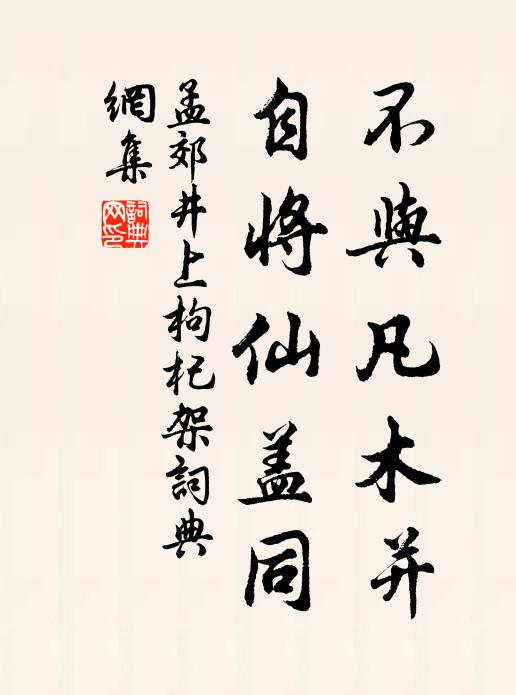 不與凡木并
自將仙盖同
孟郊井上枸杞架詞典
網集
詞典网印